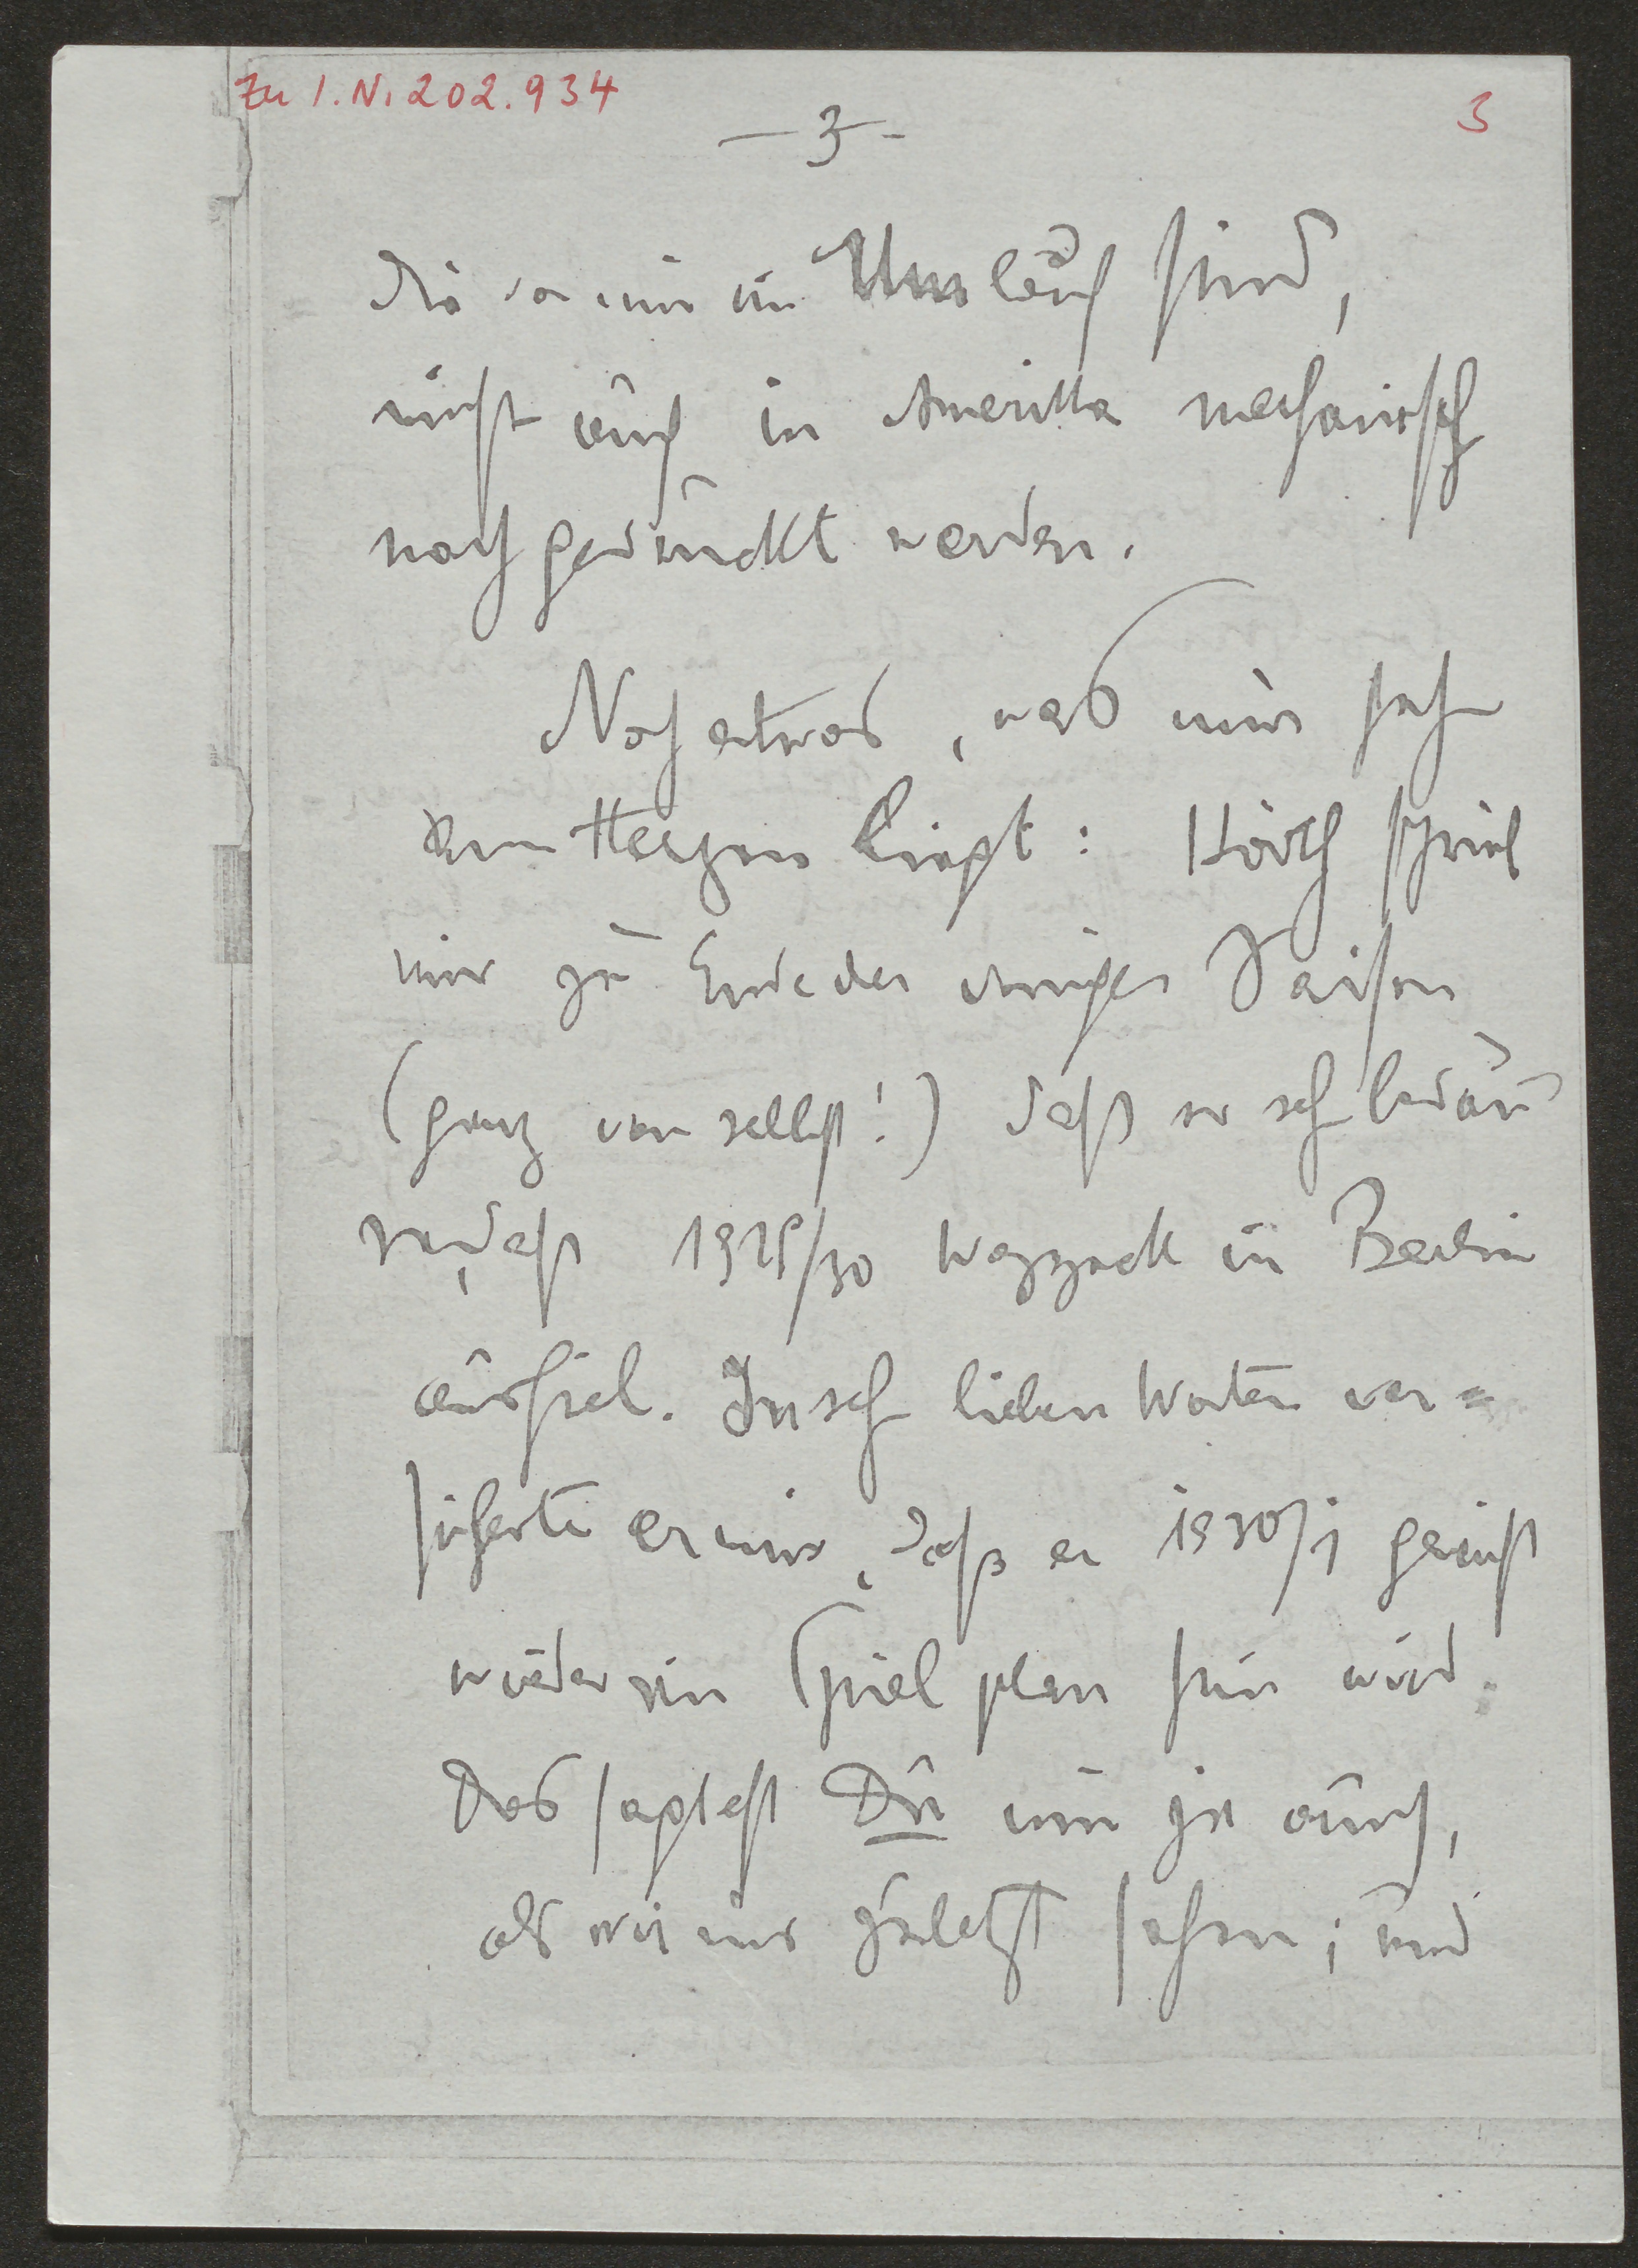 Zu I.N. 202.934
3
- 3 -
die von mir im Umlauf sind,
nicht auch in Amerika mechanisch
nachgedruckt werden.
Noch etwas, was mir sehr
am Herzen liegt: Hörth schrieb
mir zu Ende der vorigen Saison
(ganz von selbst!) daß er sehr bedau
re, daß 1929/30 Wozzeck in Berlin
ausfiel. In sehr lieben Worten ver=
sicherte er mir, daß er 1930/1 gewiß
wieder im Spielplan sein wird.
Das sagtest Du mir ja auch,
als wir uns zuletzt sahen; und